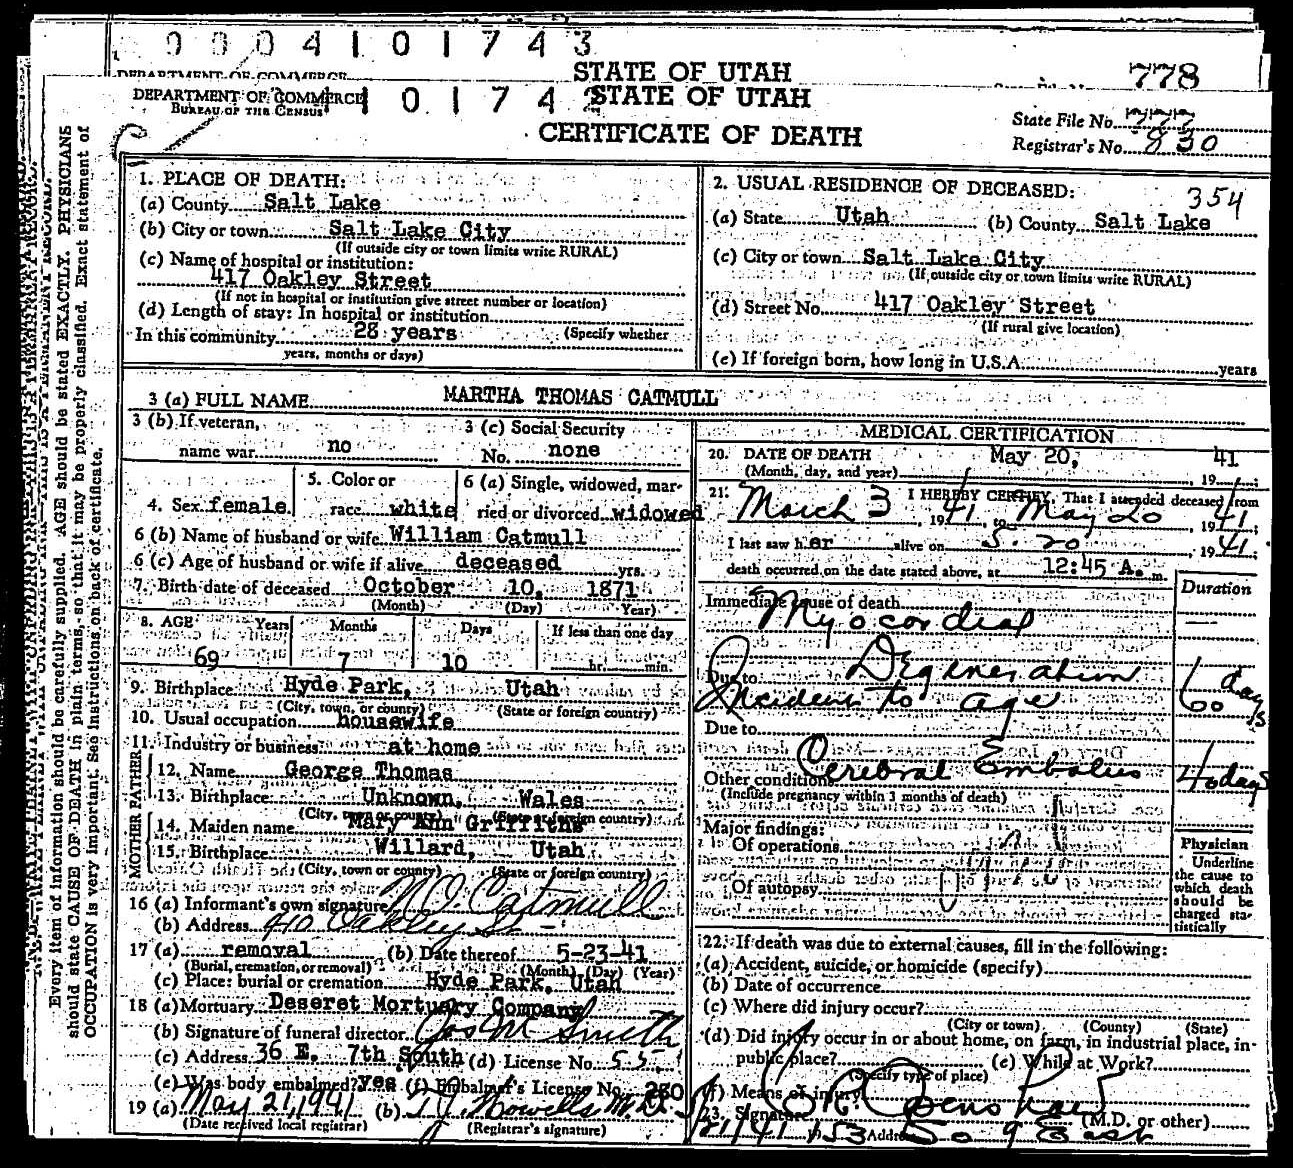 0 0 0 4 1 0 1 7 4 3
STATE OF UTAH
778
DEPARTMENT OF COMMERCE
DEPARTMENT OF COMMERCE
BUREAU OF THE CENSUS
1 0 1 7 4 2
STATE OF UTAH
CERTIFICATE OF DEATH
State File No. 777
Registrar's No. 830
354
Every item of information should be carefully supplied. AGE should be stated EXACTLY. PHYSICIANS
should state CAUSE OF DEATH in plain terms, so that it may be properly classified. Exact statement of
OCCUPATION is very important. See instructions on back of certificate.
1. PLACE OF DEATH:
(a) County Salt Lake
(b) City or town Salt Lake City
(If outside city or town limits write RURAL)
(c) Name of hospital or institution:
417 Oakley Street
(If not in hospital or institution give street number or location)
(d) Length of stay: In hospital or institution
In this community 28 years (Specify whether
years, months or days)
2. USUAL RESIDENCE OF DECEASED:
(a) State Utah (b) County Salt Lake
(c) City or town Salt Lake City
(If outside city or town limits write RURAL)
(d) Street No. 417 Oakley Street
(If rural give location)
(e) If foreign born, how long in U.S.A. years
3 (a) FULL NAME MARTHA THOMAS CATMULL
3 (b) If veteran,
name war no
3 (c) Social Security
No. none
4. Sex female
5. Color or
race white
6 (a) Single, widowed, mar-
ried or divorced widowed
6 (b) Name of husband or wife William Catmull
6 (c) Age of husband or wife if alive deceased yrs.
7. Birth date of deceased October 10, 1871
(Month) (Day) Year)
8. AGE Years Months Days If less than one day
69 7 10 hr. min.
9. Birthplace Hyde Park, Utah
(City, town, or county) (State or foreign country)
10. Usual occupation housewife
11. Industry or business at home
FATHER
12. Name George Thomas
13. Birthplace Unknown, Wales
(City, town or county) (State or foreign country)
MOTHER
14. Maiden name Mary Ann Griffiths
15. Birthplace Willard, Utah
(City, town or county) (State or foreign country)
16 (a) Informant's own signature Catmull
(b) Address 410 Oakley St
17 (a) removal (b) Date thereof 5-23-41
(Burial, cremation, or removal) (Month) (Day) (Year)
(c) Place: burial or cremation Hyde Park, Utah
18 (a) Mortuary Deseret Mortuary Company
(b) Signature of funeral director Jos M Smith
(c) Address 36 E. 7th South (d) License No. 55
(e) Was body embalmed? yes (f) Embalmer's License No. 250
19 (a) May 21, 1941 (b) T. J. Howells M.D.
(Date received local registrar) (Registrar's signature)
MEDICAL CERTIFICATION
20. DATE OF DEATH May 20, 41
(Month, day, and year) , 19
21. I HEREBY CERTIFY, That I attended deceased from
March 3, 1941, to May 20, 1941;
I last saw her alive on 5-20, 1941;
death occurred on the date stated above, at 12:45 A. m.
Duration
Immediate cause of death
Myocordial
Due to Degineration
Incident to age
60 days
Due to
Cerebral Embolus 40 days
Other conditions
(Include pregnancy within 3 months of death)
Major findings:
Of operations
Of autopsy
Physician
Underline
the cause to
which death
should be
charged sta-
tistically
22. If death was due to external causes, fill in the following:
(a) Accident, suicide, or homicide (specify)
(b) Date of occurrence
(c) Where did injury occur?
(City or town) (County) (State)
(d) Did injury occur in or about home, on farm, in industrial place, in
public place? (e) While at Work?
(Specify type of place)
(f) Means of injury
23. Signature R. Openshaw (M.D. or other)
5/21/41 153 Address So 9 East